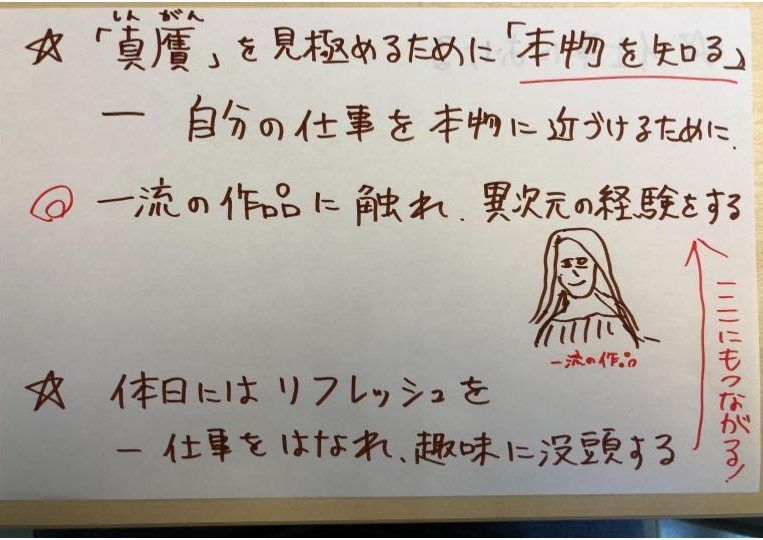 しん がん
☆ 「真贋」を見極めるために「本物を知る」
― 自分の仕事を本物に近づけるために.
◎ 一流の作品に触れ、異次元の経験をする
一流の作品
☆ 休日にはリフレッシュを
― 仕事をはなれ、趣味に没頭する
ここにもつながる!